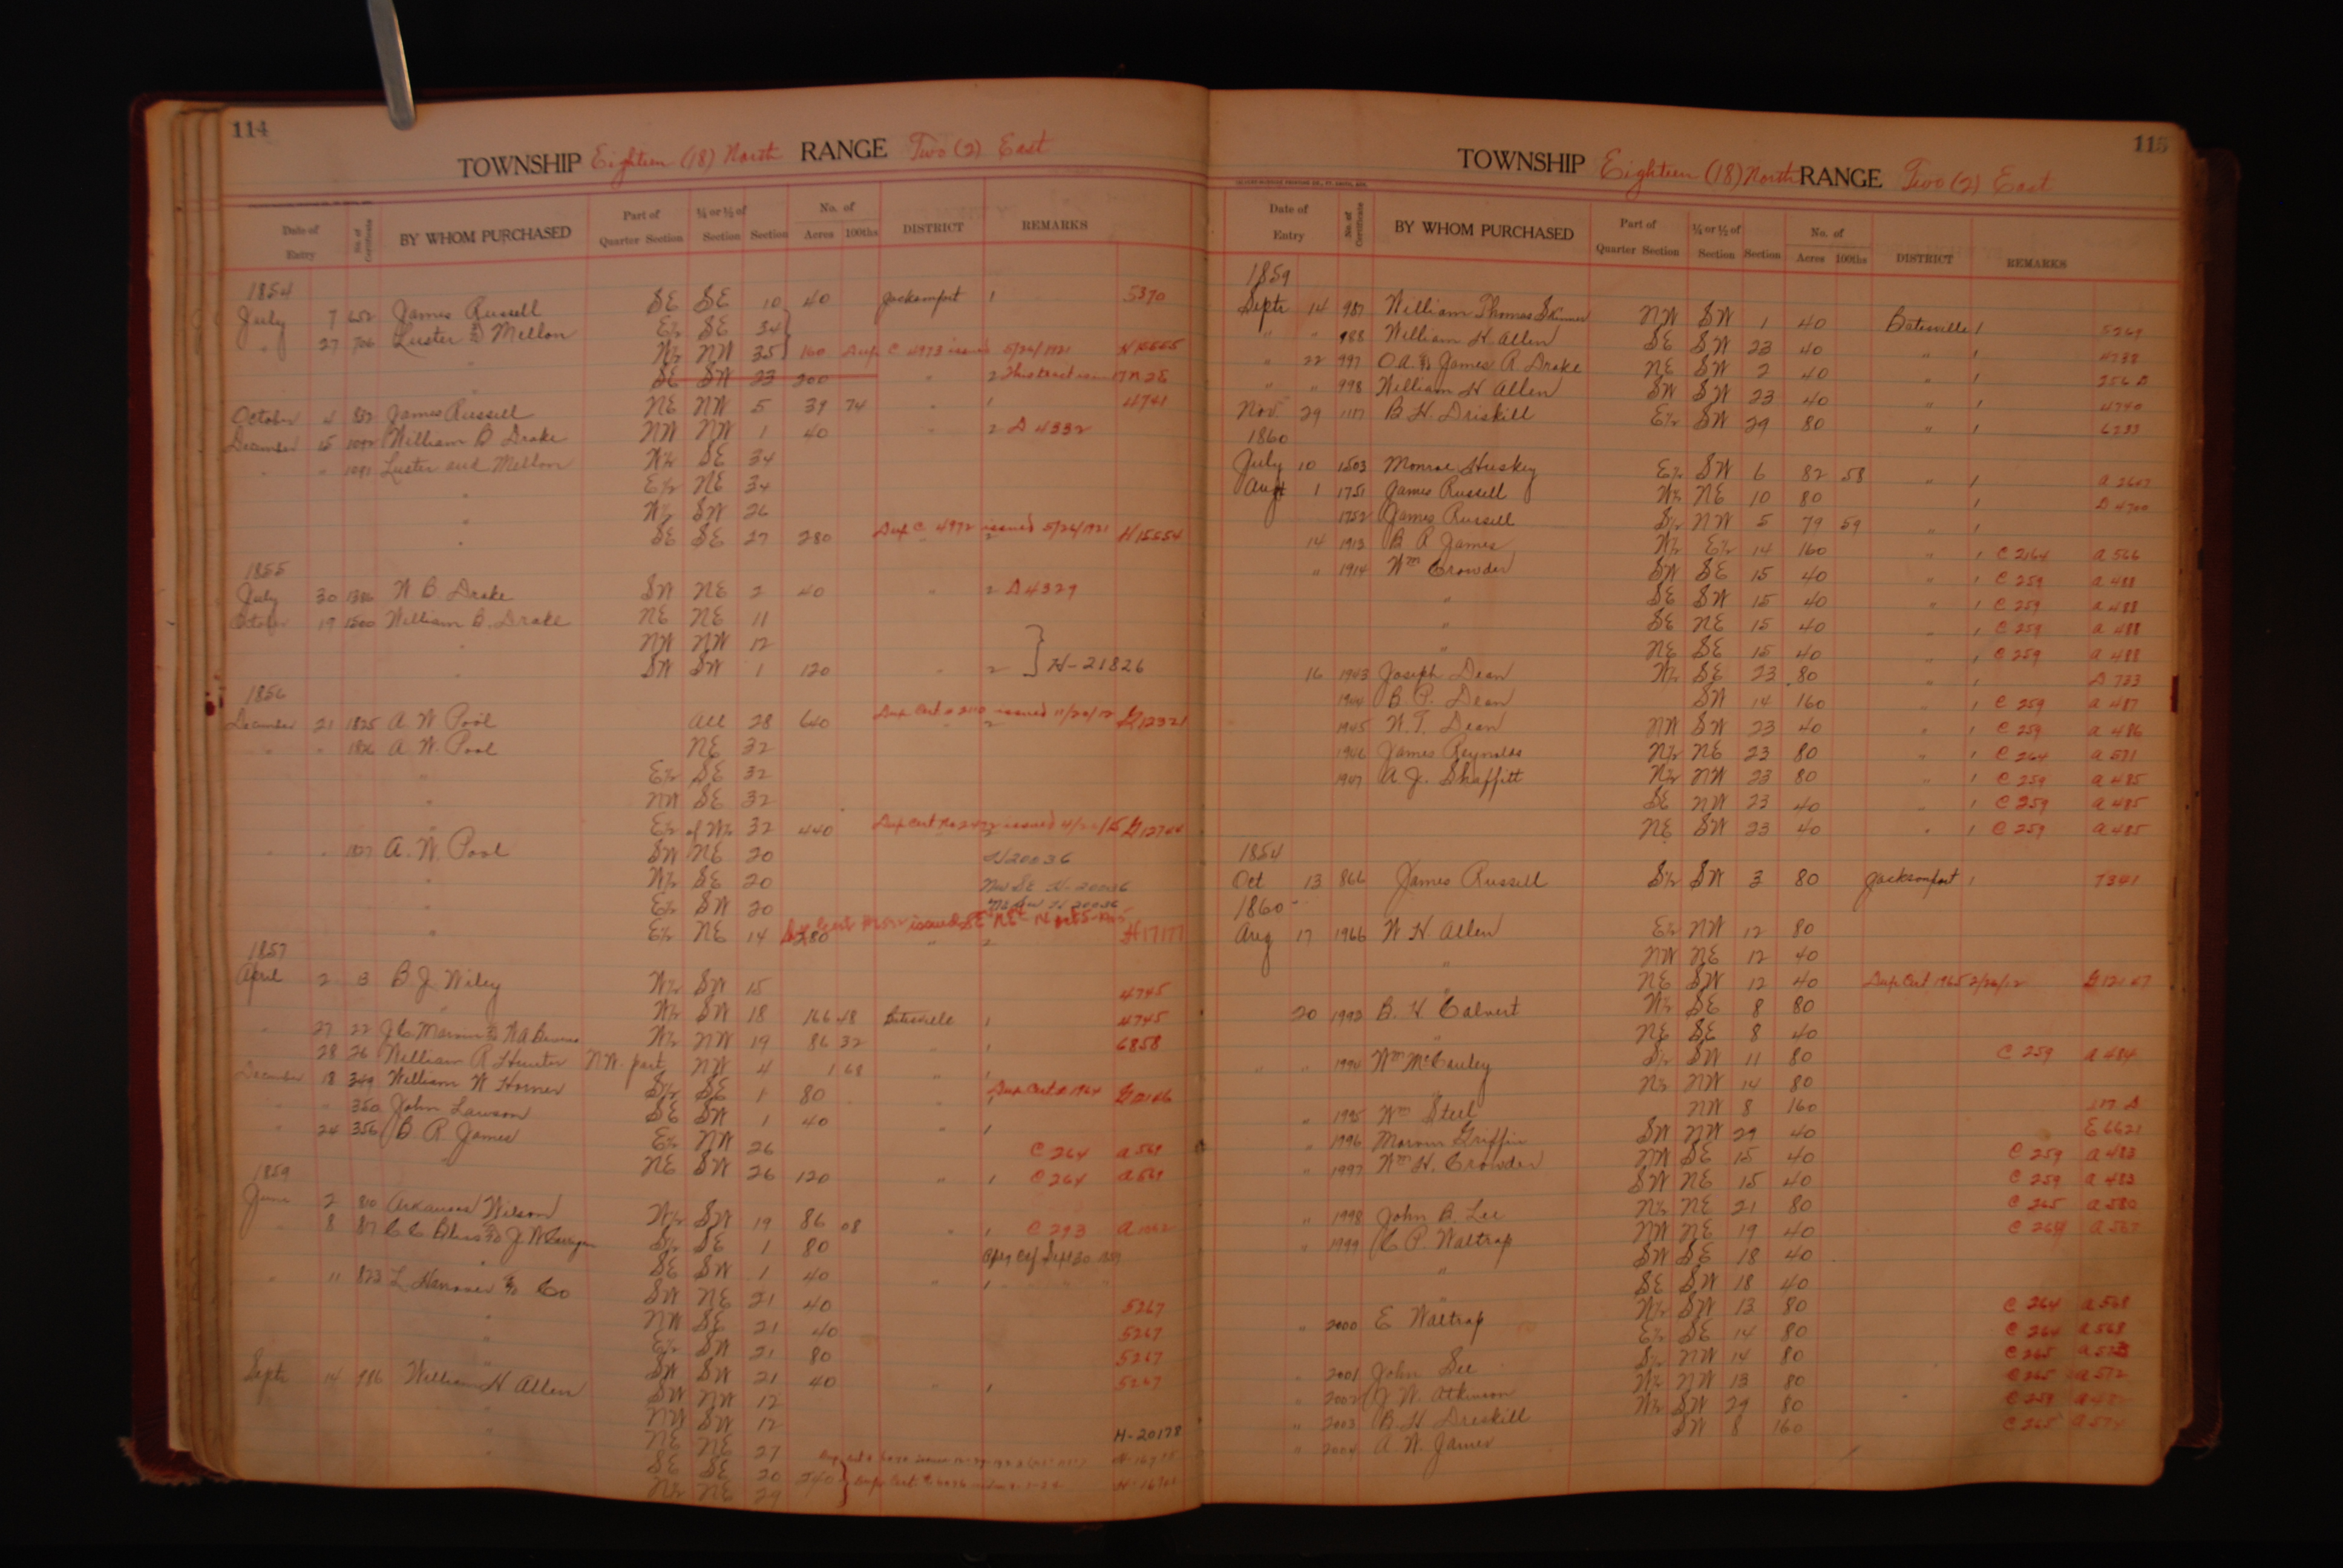 114
TOWNSHIP Eighteen (18) North RANGE Two (2) East
Date of Entry No. of Certificate BY WHOM PURCHASED Part of Quarter Section ¼ or ½ of Section Section No. of Acres 100ths DISTRICT REMARKS
1854
July 7 652 James Russell SE SE 10 40 Jacksonport 1 5370
" 27 706 Luster & Mellon E½ SE 34
" W½ NW 35 160 Dup C 4973 issued 5/26/1921
" SE SW 23 200 " 2 This tract in 17N2E
October 4 852 James Russell NE NW 5 39 74 " 1 4741
December 15 1092 William B Drake NW NW 1 40 " 2 D 4332
" " 1091 Luster and Mellon W½ SE 34
" E½ NE 34
" W½ SW 26
" SE SE 27 280 Dup C. 4972 issued 5/26/1921 H15554
1855
July 30 1386 W B Drake SW NE 2 40 " 2 D4329
October 19 1500 William B. Drake NE NE 11
" NW NW 12
" SW SW 1 120 " 2 H-21826
1856
December 21 1825 A W Pool All 28 640 Dup Cert # 2110 issued 11/20/12 G12321
" " 1826 A W. Pool NE 32
" E½ SE 32
" NW SE 32
" E½ of W½ 32 440 Dup Cert No issued G12744
" " 1827 A. W. Pool SW NE 20 H20036
" W½ SE 20 NW SE H-20036
" E½ SW 20 NE SW H 20036
" E½ NE 14 280 " 2 H17177
1857
April 2 3 B J Wiley W½ SW 15 4745
" W½ SW 18 166 48 Batesville 1 4745
" 27 22 J C Marvin & W A W½ NW 19 86 32 " 1 6858
28 26 William R Hunter NW. part NW 4 1 68 " 1
December 18 349 William W Horner S½ SE 1 80 Dup Cert # 1964 G12166
" " 350 John Lawson SE SW 1 40 " 1
" 24 356 B R James E½ NW 26 C 264 A 569
NE SW 26 120 " 1 C 264 A 569
1859
June 2 810 Arkansas Wilson W½ SW 19 86 08 " 1 C 293
" 8 817 C C Bliss & J W S½ SE 1 80
" SE SW 1 40 " 1
" 11 823 L Hanover & Co SW NE 21 40 5267
" NW SE 21 40 5267
" E½ SW 21 80 5267
" SW SW 21 40 " 1 5267
Septr 14 986 William H Allen SW NW 12
" NW SW 12
" NE NE 27 H-20178
" SE SE 20
" N½ NE 29 240
115
TOWNSHIP Eighteen (18) North RANGE Two (2) East
Date of Entry No. of Certificate BY WHOM PURCHASED Part of Quarter Section ¼ or ½ of Section Section No. of Acres 100ths DISTRICT REMARKS
1859
Septr 14 987 William Thomas Skinner NW SW 1 40 Batesville 1 5269
" " 988 William H Allen SE SW 23 40 " 1 4738
" 22 997 O.A. & James R. Drake NE SW 2 40 " 1 256 D
" " 998 William H Allen SW SW 23 40 " 1 4740
Nov. 29 1117 B H. Driskill E½ SW 29 80 " 1 6233
1860
July 10 1503 Monroe Huskey E½ SW 6 82 58 " 1 A 2607
Augt 1 1751 James Russell W½ NE 10 80 1 D 4700
1752 James Russell S½ NW 5 79 59 " 1
14 1913 B R James W½ E½ 14 160 " 1 C 2164 A 566
" 1914 Wm Crowder SW SE 15 40 " 1 C 259 A 488
" SE SW 15 40 " 1 C 259 A 488
" SE NE 15 40 " 1 C 259 A 488
" NE SE 15 40 " 1 C 259 A 488
16 1943 Joseph Dean W½ SE 23 80 " 1 D 733
1944 B. P. Dean SW 14 160 " 1 C 259 A 487
1945 W. T. Dean NW SW 23 40 " 1 C 259 A 486
1946 James Reynolds N½ NE 23 80 " 1 C 264 A 571
1947 A J. Shaffitt N½ NW 23 80 " 1 C 259 A 485
SE NW 23 40 " 1 C 259 A 485
NE SW 23 40 " 1 C 259 A 485
1854
Oct 13 866 James Russell S½ SW 3 80 Jacksonport 1 7341
1860
Aug 17 1966 W H Allen E½ NW 12 80
" NW NE 12 40
" NE SW 12 40 Dup Cert 1965 2/26/12 G 12167
20 1993 B. H Calvert W½ SE 8 80
" NE SE 8 40
" " 1994 Wm McCauley S½ SW 11 80 C 259 A 484
N½ NW 14 80
" 1995 Wm Steel NW 8 160 117 D
" 1996 Marvin Griffin SW NW 29 40 E 6621
" 1997 Wm H. Crowder NW SE 15 40 C 259 A 483
SW NE 15 40 C 259 A 483
" 1998 John B. Lee N½ NE 21 80 C 265 A 580
" 1999 C P Waltrap NW NE 19 40 C 264 A 567
" SW SE 18 40
" SE SW 18 40
" 2000 E Waltrap W½ SW 13 80 C 264 A 568
E½ SE 14 80 C 264 A 568
" 2001 John See S½ NW 14 80 C 265
" 2002 J. W. Atkinson W½ NW 13 80 C 265 A 572
" 2003 B. H Driskill W½ SW 29 80 C 259
" 2004 A W. James SW 8 160 C 265